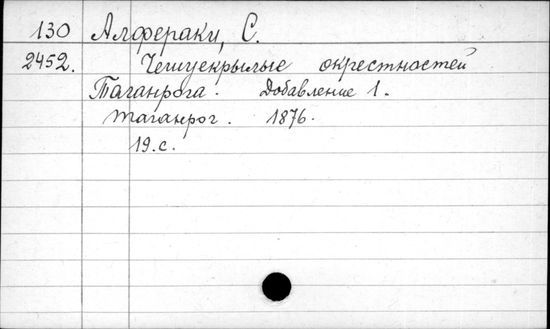 130 Алфераки, С.
2452. Чешуекрылые окрестностей
Таганрога. Добавление 1.
Таганрог. 1876.
19.с.